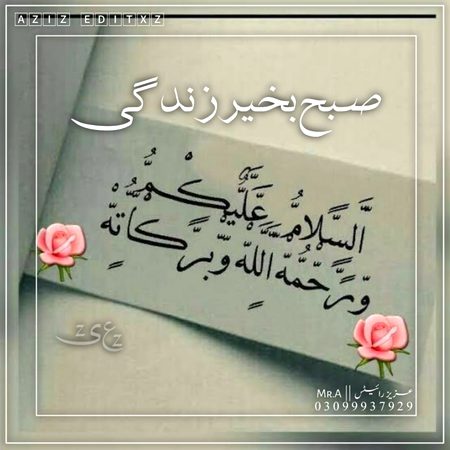 AZIZ EDITXZ
صبح بخیر زندگی
السَّلَامُ عَلَيْكُمْ
وَرَحْمَةُ اللَّهِ وَبَرَكَاتُهُ
MR.A || عزیز رائیٹس
03099937929